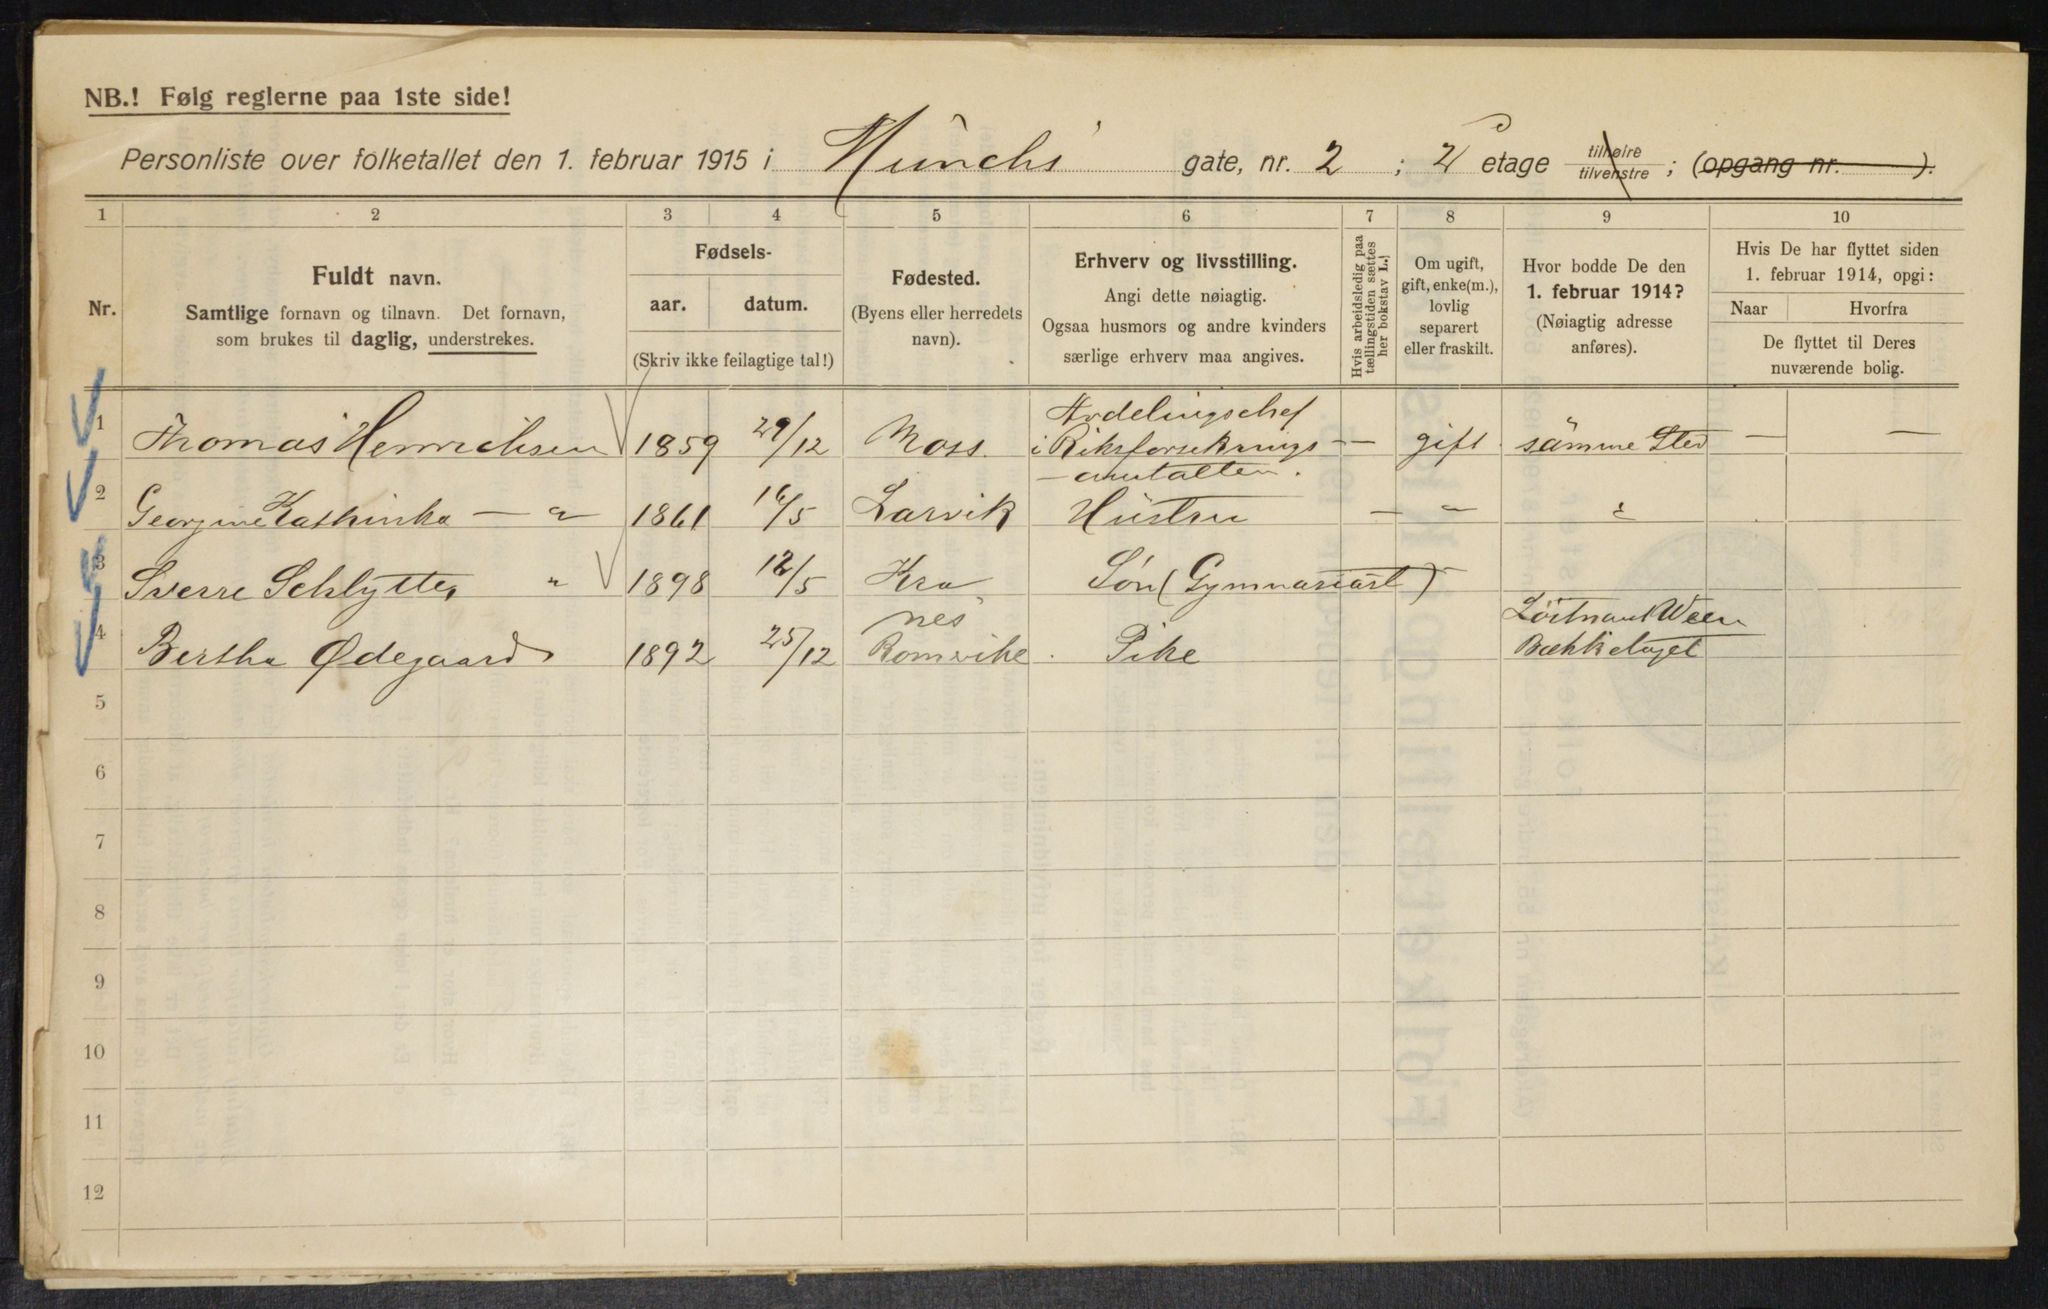 NB.! Følg reglerne paa 1ste side!
Personliste over folketallet den 1. februar 1915 i Münchs gate, nr. 2 ; 2 etage tilhøire tilvenstre ; (opgang nr. ).
1 2 3 4 5 6 7 8 9 10
Nr.
Fuldt navn.
Samtlige fornavn og tilnavn. Det fornavn,
som brukes til daglig, understrekes.
Fødsels-
aar. datum.
(Skriv ikke feilagtige tal!)
Fødested.
(Byens eller herredets
navn).
Erhverv og livsstilling.
Angi dette nøiagtig.
Ogsaa husmors og andre kvinders
særlige erhverv maa angives.
Hvis arbeidsledig paa
tællingstiden sættes
her bokstav L.
Om ugift,
gift, enke(m.),
lovlig
separert
eller fraskilt.
Hvor bodde De den
1. februar 1914?
(Nøiagtig adresse
anføres).
Hvis De har flyttet siden
1. februar 1914, opgi:
Naar Hvorfra
De flyttet til Deres
nuværende bolig.
1 Thomas Henrichsen 1859 29/12 Moss. Avdelingschef i Riksforsikrings-anstalten. — gift. samme Sted — —
2 Georgine Kathinka — " 1861 16/5 Larvik Hustru — " "
3 Sverre Schlytter " 1898 12/5 Kra Søn (Gymnasiast)
4 Bertha Ødegaard 1892 25/12 nes Romerike Pike Løitnant Ween Bækkelaget
5
6
7
8
9
10
11
12